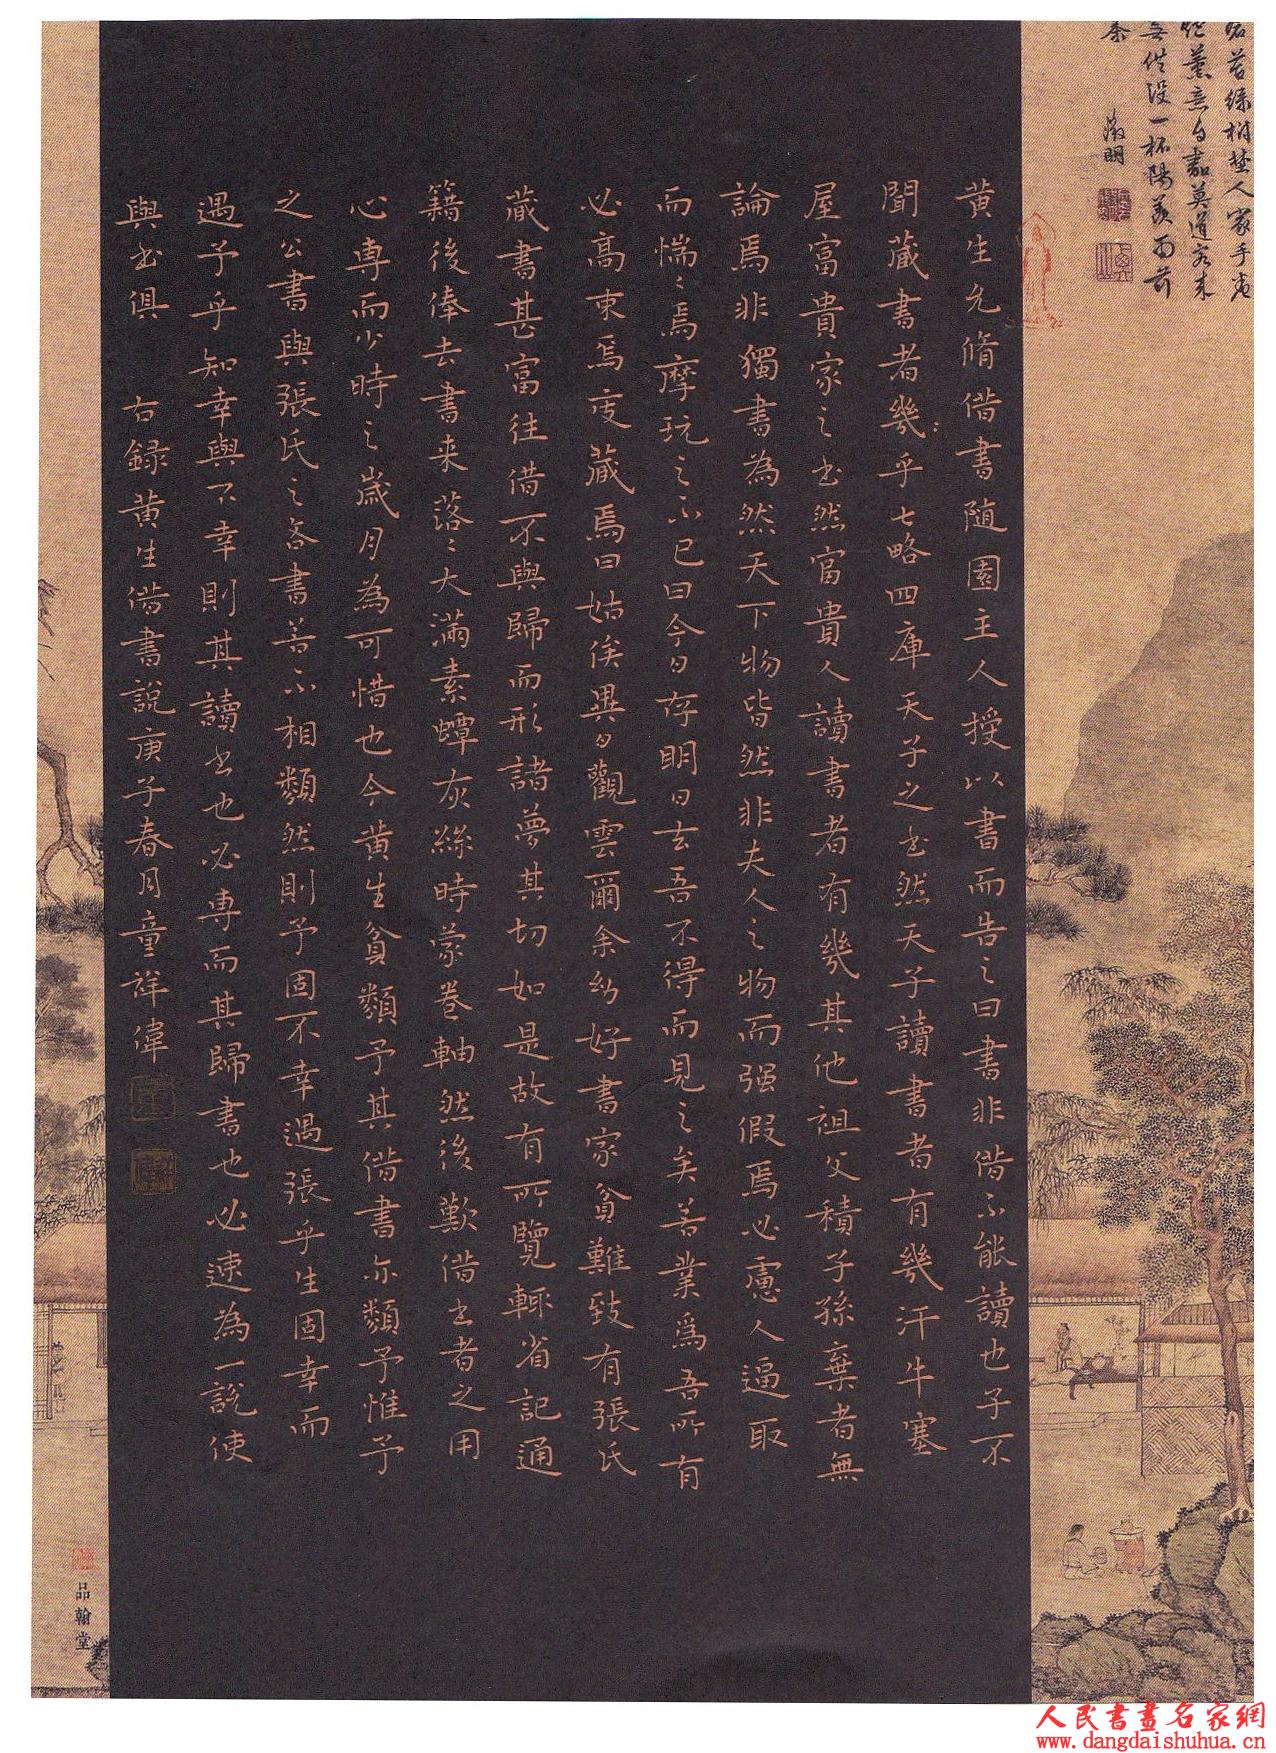 黄生允脩借書隨園主人授以書而告之曰書非借不能讀也子不
聞藏書者幾乎七略四庫天子之书然天子讀書者有幾汗牛塞
屋富貴家之书然富貴人讀書者有幾其他祖父積子孫棄者無
論焉非獨書為然天下物皆然非夫人之物而强假焉必慮人逼取
而惴〻焉摩玩之不已曰今日存明日去吾不得而見之矣若業爲吾所有
必高束焉庋藏焉曰姑俟異日觀雲爾余幼好書家貧難致有張氏
藏書甚富往借不與歸而形諸夢其切如是故有所覽輒省記通
籍後俸去書来落〻大滿素蟫灰絲時蒙卷軸然後歎借书者之用
心専而少時之歲月為可惜也今黄生貧類予其借書亦類予惟予
之公書與張氏之吝書若不相類然則予固不幸遇張乎生固幸而
遇予乎知幸與不幸則其讀书也必専而其歸書也必速為一說使
與书俱 右録黄生借書說庚子春月童祥偉
徵明
品翰堂
人民書畫名家網
www.dangdaishuhua.cn